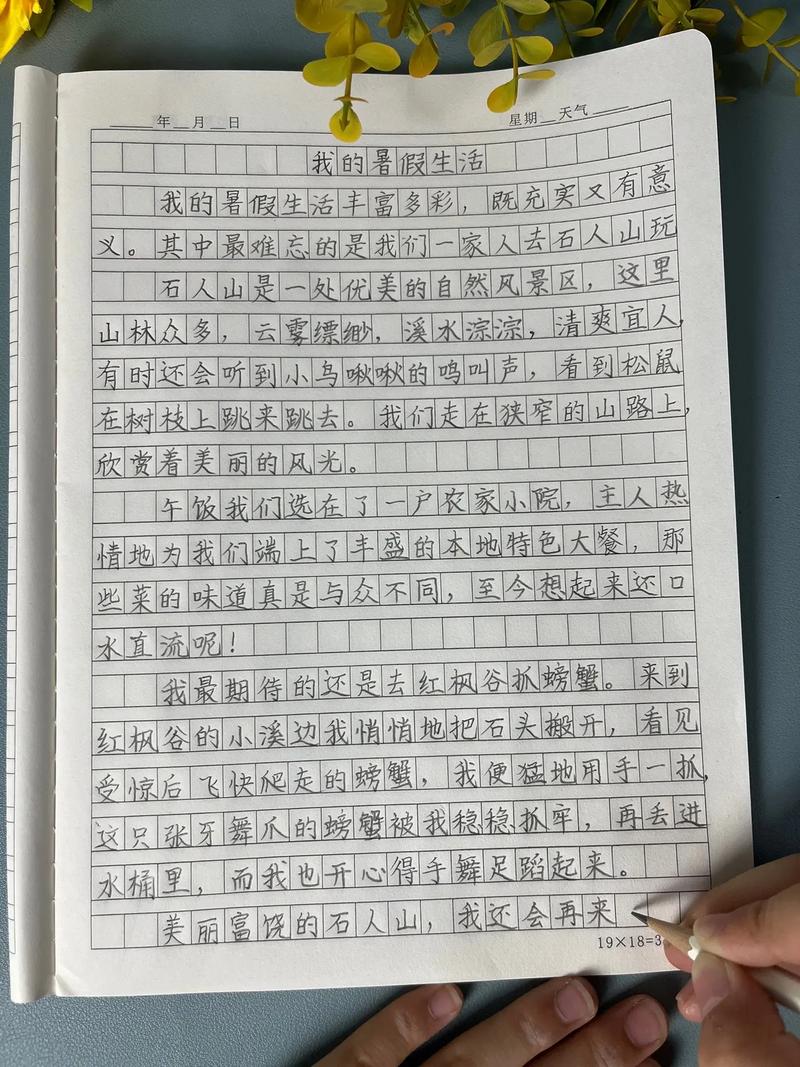 年 月 日 星期 天气
我的暑假生活
我的暑假生活丰富多彩，既充实又有意
义。其中最难忘的是我们一家人去石人山玩
石人山是一处优美的自然风景区，这里
山林众多，云雾缥缈，溪水淙淙，清爽宜人，
有时还会听到小鸟啾啾的鸣叫声，看到松鼠
在树枝上跳来跳去。我们走在狭窄的山路上，
欣赏着美丽的风光。
午饭我们选在了一户农家小院，主人热
情地为我们端上了丰盛的本地特色大餐，那
些菜的味道真是与众不同，至今想起来还口
水直流呢！
我最期待的还是去红枫谷抓螃蟹。来到
红枫谷的小溪边我悄悄地把石头搬开，看见
受惊后飞快爬走的螃蟹，我便猛地用手一抓，
这只张牙舞爪的螃蟹被我稳稳抓牢，再丢进
水桶里，而我也开心得手舞足蹈起来。
美丽富饶的石人山，我还会再来
19×18=3